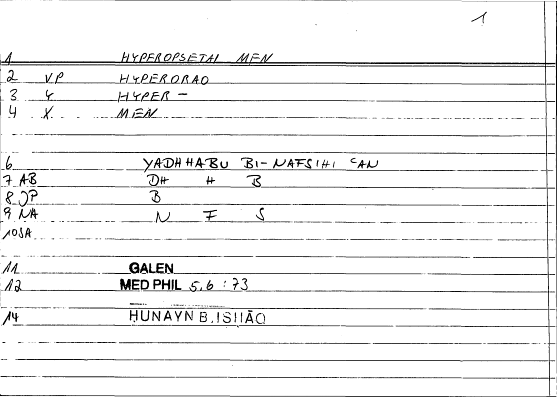 1
1 HYPEROPSETAI MEN
2 VP HYPERORAO
3 Y HYPER-
4 X MEN
6 YADHHABU BI-NAFSIHI ʿAN
7 AB DH H B
8 JP B
9 NA N F S
10 SA
11 GALEN
12 MED PHIL 5,6 : 73
14 HUNAYN B. ISHAQ